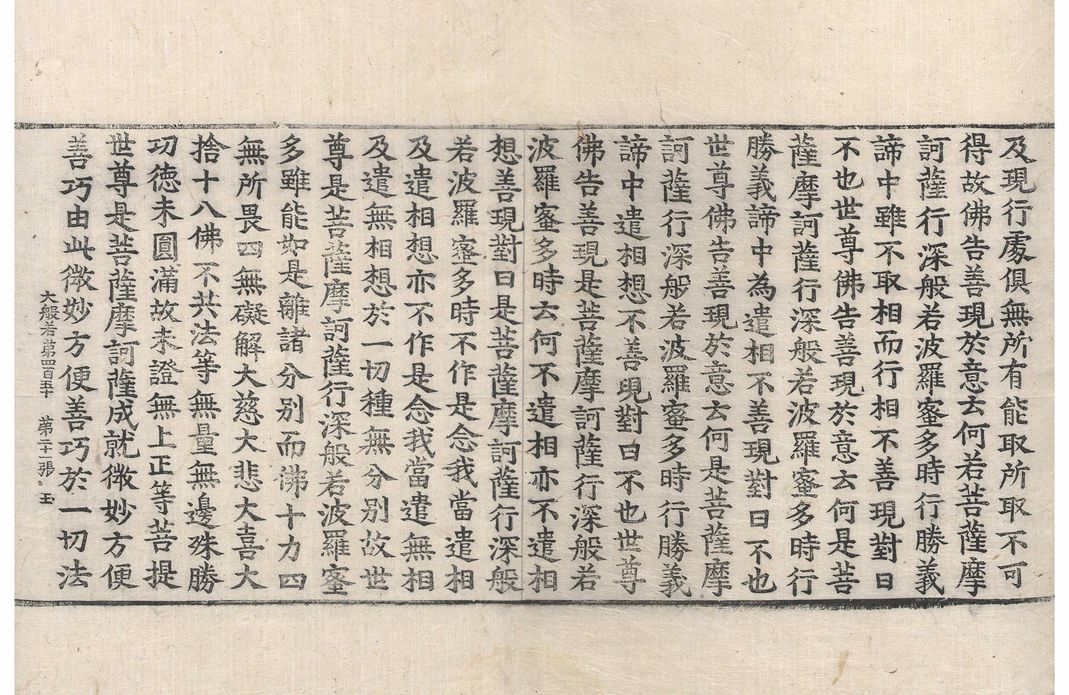 及現行處俱無所有能取所取不可
得故佛告善現於意云何若菩薩摩
訶薩行深般若波羅蜜多時行勝義
諦中雖不取相而行相不善現對曰
不也世尊佛告善現於意云何是菩
薩摩訶薩行深般若波羅蜜多時行
勝義諦中為遣相不善現對曰不也
世尊佛告善現於意云何是菩薩摩
訶薩行深般若波羅蜜多時行勝義
諦中遣相想不善現對曰不也世尊
佛告善現是菩薩摩訶薩行深般若
波羅蜜多時云何不遣相亦不遣相
想善現對曰是菩薩摩訶薩行深般
若波羅蜜多時不作是念我當遣相
及遣相想亦不作是念我當遣無相
及遣無相想於一切種無分別故世
尊是菩薩摩訶薩行深般若波羅蜜
多雖能如是離諸分別而佛十力四
無所畏四無礙解大慈大悲大喜大
捨十八佛不共法等無量無邊殊勝
功德未圓滿故未證無上正等菩提
世尊是菩薩摩訶薩成就微妙方便
善巧由此微妙方便善巧於一切法
大般若第四百五十 第二十一張 玉